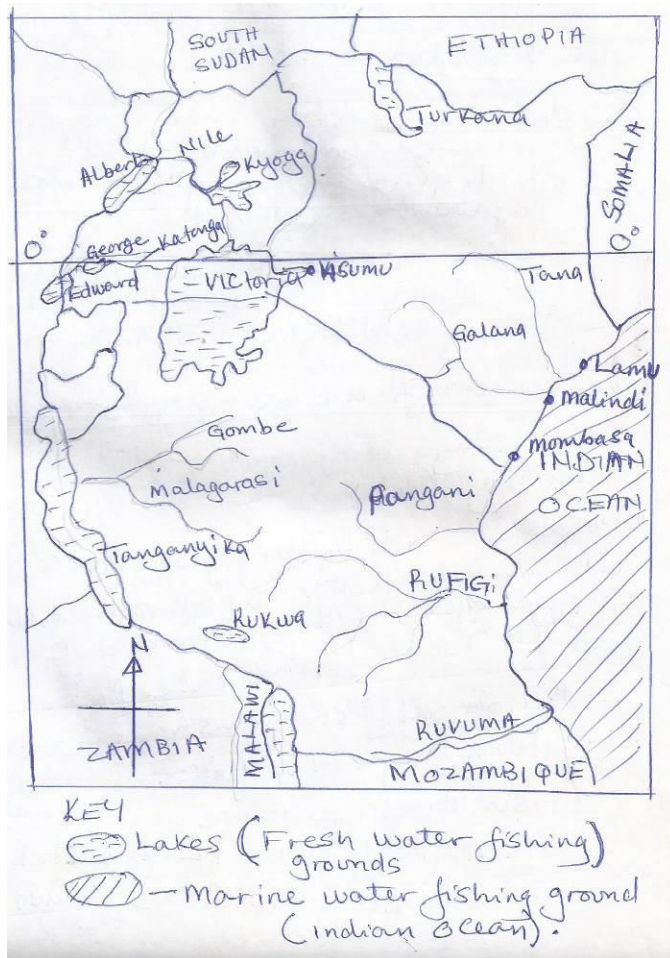 SOUTH
SUDAN
ETHIOPIA
Turkana
SOMALIA
Albert
Nile
Kyoga
0°
George
Katonga
Edward
VICtoria
KISUMU
0°
Tana
Galana
Lamu
Malindi
Mombasa
INDIAN
OCEAN
Gombe
Malagarasi
Pangani
Tanganyika
RUFIGI
RUKWA
N
ZAMBIA
MALAWI
RUVUMA
MOZAMBIQUE
KEY
Lakes (Fresh water fishing)
grounds
— Marine water fishing ground
(indian Ocean).